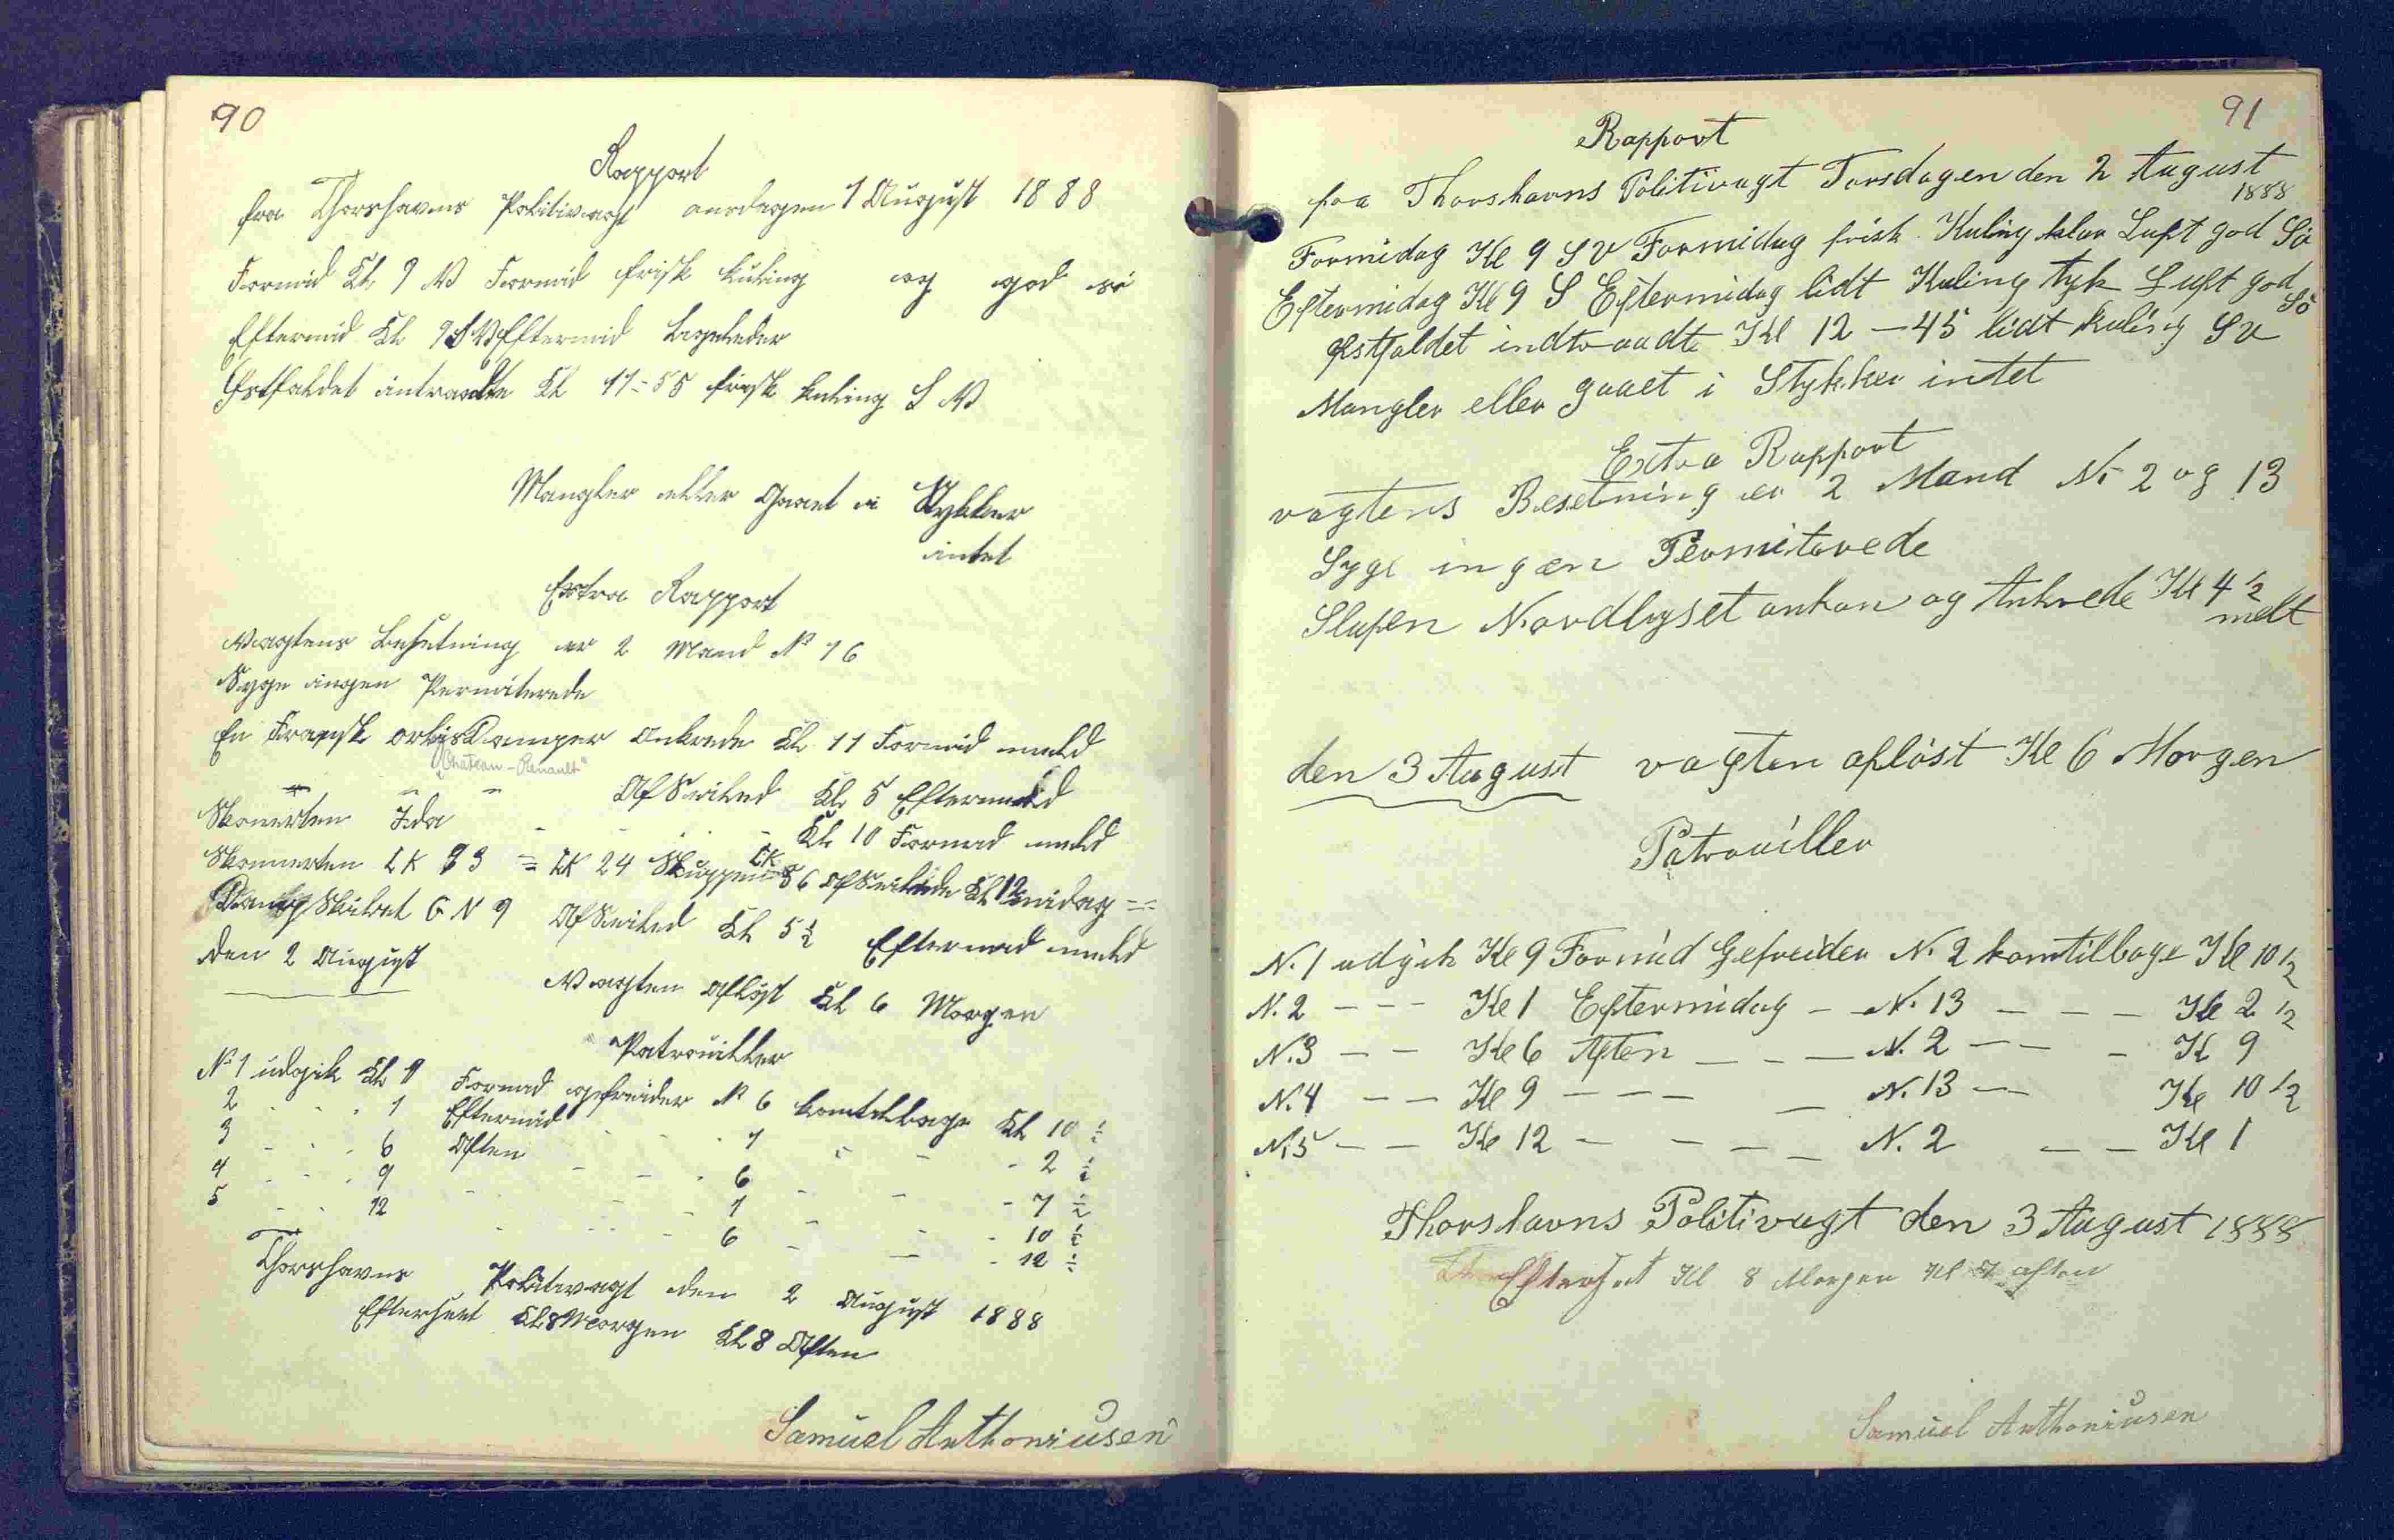 90
Rapport
fra Thorshavns Politivagt onsdagen 1 August 1888
Formid Kl 9 V Formid frisk kuling og god sö
Eftermid Kl 9 S V Eftermid ligeleder
Østfaldet intraadte Kl 11-55 frisk kuling S V
Mangler eller Gaaet i Stykker
intet
Extra Rapport
Vagtens besetning er 2 Mand N 16
Syge ingen Permiterede
En Fransk orlisDamper Ankrede Kl 11 Formid meld
"Chateau-Renault"
" " " Af Seiled Kl 5 Eftermid
Skonerten Ida - - - Kl 10 Formid meld
Skonnerten LK 73 = LK 24 Sluppen LK 56 Af Seilede Kl 12 midag =
DampSkibet G N 9 Af Seiled Kl 5 1/2 Eftermid meld
den 2 August Vagten Aflöst Kl 6 Morgen
Patrouiller
N 1 udgik Kl 9 Formid gefreider N 6 komtilbage Kl 10 1/2
2 - - 1 Eftermid - - 1 - - 2 1/2
3 - - 6 Aften - - 6 - - 7 1/2
4 - - 9 - - 1 - - 10 1/2
5 - - 12 - - 6 - - 12 1/2
Thorshavns Politivagt den 2 August 1888
Efterseet Kl 8 Morgen Kl 8 Aften
Samuel Anthoniusen
91
Rapport
fra Thorshavns Politivagt Torsdagen den 2 August
1888
Formidag Kl 9 SV Formidag frisk Kuling klar Luft god Sö
Eftermidag Kl 9 S Eftermidag lidt Kuling tyk Luft god
Sö
Østfaldet indtraadte Kl 12-45 lidt kuling SV
Mangler eller gaaet i Stykker intet
Extra Rapport
vagtens Besetning er 2 Mand N 2 og 13
Syge ingen Permiterede
Slupen Nordlyset ankom og Ankrede Kl 4 1/2
melt
den 3 August vagten aflöst Kl 6 Morgen
Patrouiller
N. 1 udgik Kl 9 Formid Gefreider N. 2 komtilbage Kl 10 1/2
N. 2 - - - Kl 1 Eftermidag - - N. 13 - - - Kl 2 1/2
N. 3 - - Kl 6 Aften - - - N. 2 - - - Kl 9
N. 4 - - Kl 9 - - - - N. 13 - Kl 10 1/2
N. 5 - - Kl 12 - - - - N. 2 - - Kl 1
Thorshavns Politivagt den 3 August 1888
Efterset Kl 8 Morgen Kl 7 aften
Samuel Anthoniusen